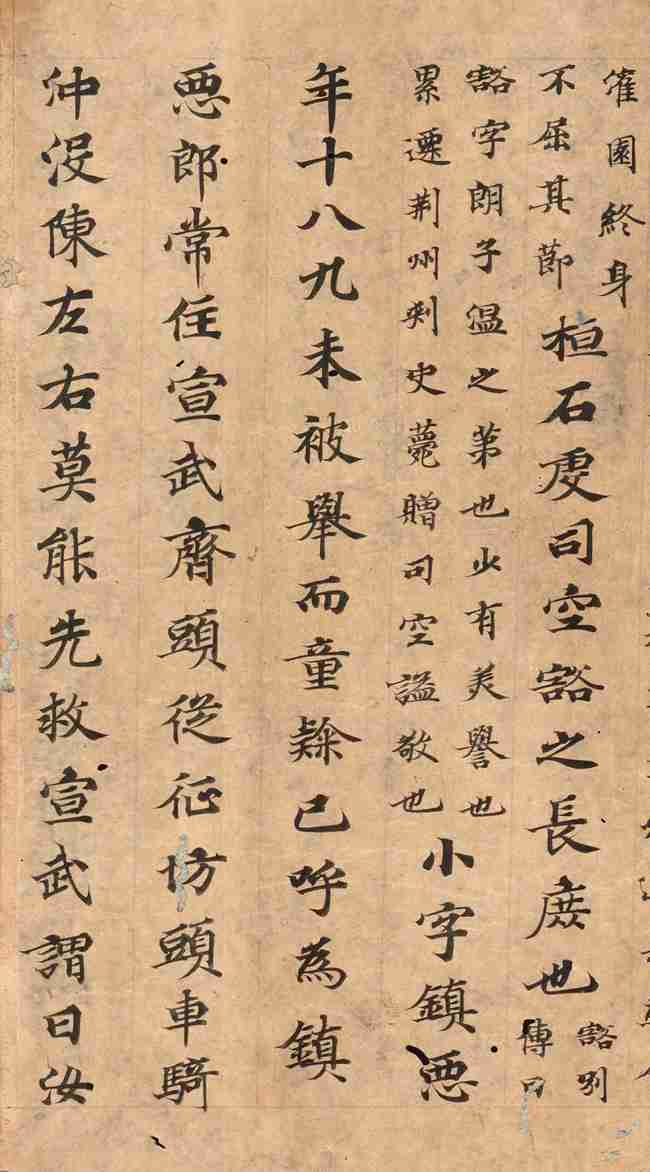 園終身
不屈其節
桓石虔司空豁之長庶也
豁別
傳曰
豁字朗子温之弟也少有美譽也
累遷荆州刾史薨贈司空謚敬也
小字鎮惡
年十八九未被舉而童隷已呼為鎮
惡郎常住宣武齊頭從征坊頭車騎
仲没陳左右莫能先救宣武謂曰汝